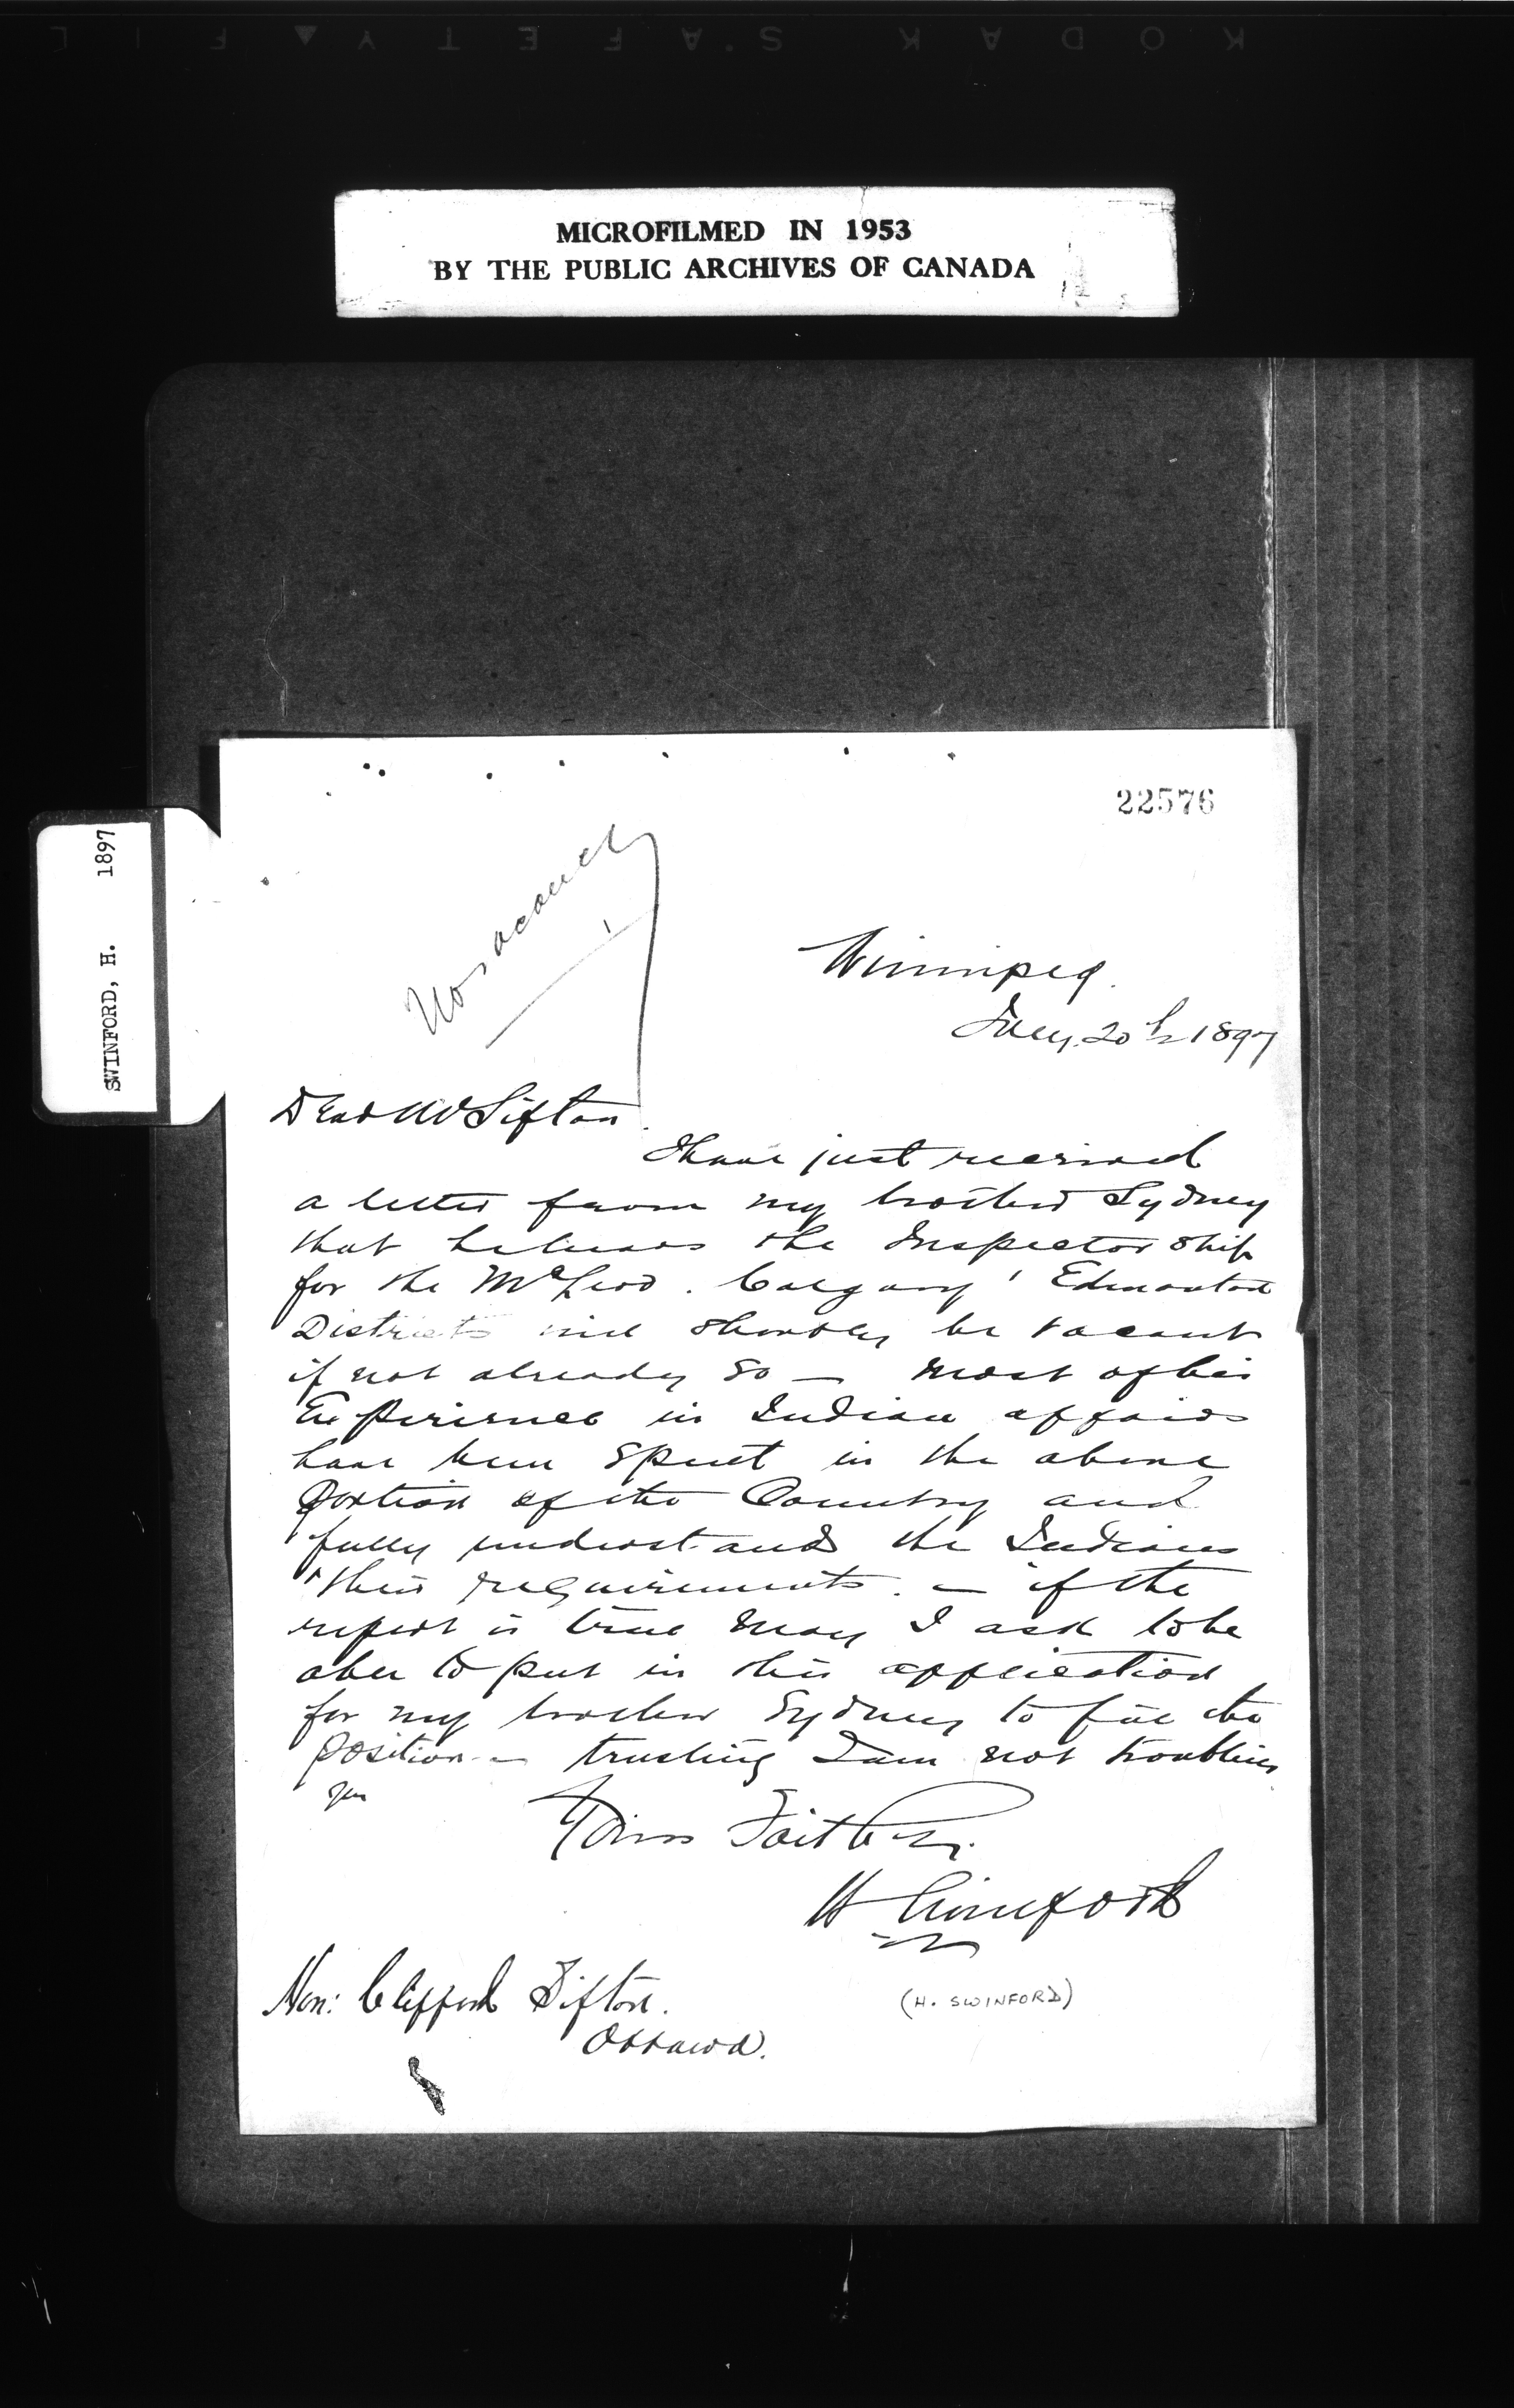 KODAK SAFETY FIL
MICROFILMED IN 1953
BY THE PUBLIC ARCHIVES OF CANADA
SWINFORD, H. 1897
22576
No vacancy
Winnipeg.
July 20th 1897
Dear Mr Sifton
I have just received
a letter from my brother Sydney
that he hears the Inspector ship
for the McLeod. Calgary & Edmonton
Districts will shortly be vacant
if not already so — most of his
Experience in Indian affairs
have been spent in the above
Portion of the Country and
fully understands the Indians
& their requirements. — if the
report is true may I ask to be
able to put in this application
for my brother Sydney to fill the
Position — trusting I am not troubling
you
Yours Faithfully
H Swinford
(H. SWINFORD)
Hon: Clifford Sifton.
Ottawa.